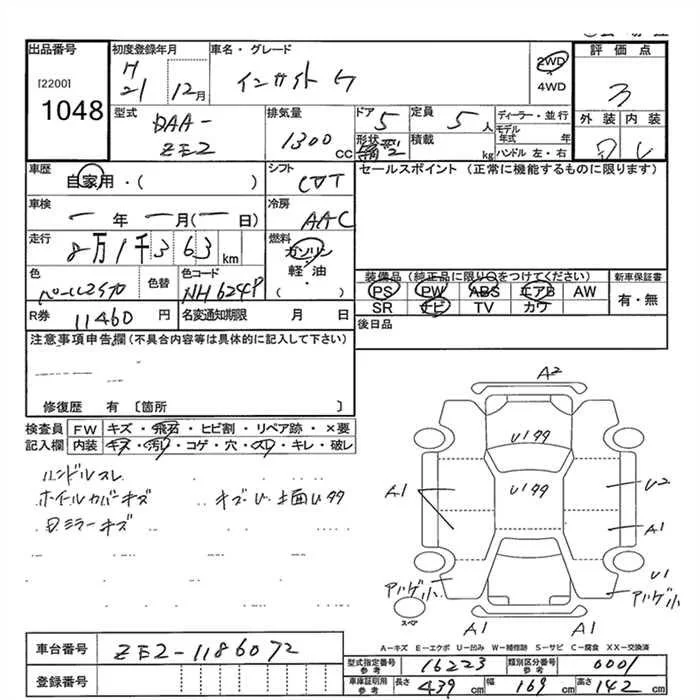 出品番号
[2200]
1048
初度登録年月
H
21 12月
車名・グレード
インサイト
2WD
4WD
評価点
3
外装 内装
型式
DAA-
ZE2
排気量
1300
CC
ドア 5
定員 5人
形状
積載 kg
ディーラー・並行
モデル
年式 年
ハンドル 左・右
車歴
自家用・( )
シフト
CVT
セールスポイント (正常に機能するものに限ります)
車検
年 月( 日)
冷房
AAC
走行
8万1千363km
燃料
ガソリン
軽・油
( )
色
パールスミレ
色替
色コード
NH624P
装備品 (純正品に限り○をつけてください)
PS PW ABS エアB AW
SR ナビ TV カワ
新車保証書
有・無
R券 11460 円
名変通知期限 月 日
後日品
注意事項申告欄 (不具合内容等は具体的に記入して下さい)
修復歴 有 〔箇所 〕
検査員
記入欄
FW キズ・飛石・ヒビ割・リペア跡・×要
内装 キズ・汚れ・コゲ・穴・スレ・キレ・破レ
ハンドルスレ
ホイールカバーキズ
ミラーキズ
A2
U1 99
U1 99
A1
U2
A1
U1
A1
A1
スペア
A-キズ E-エクボ U-凹み W-補修跡 S-サビ C-腐食 XX-交換済
車台番号
ZE2-1186072
登録番号
型式指定番号
参考
16223
類別区分番号
参考
0001
車庫証明用
参考
長さ 439 cm
幅 169 cm
高さ 142 cm